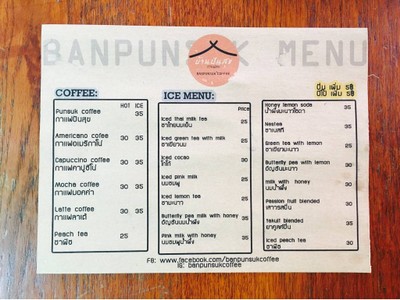 BANPUNSUK MENU
บ้านปันสุข
COFFEE:
HOT ICE
Punsuk coffee 35
กาแฟปันสุข
Americano cofee 30 35
กาแฟอเมริกาโน่
Capuccino coffee 30 35
กาแฟคาปูชิโน่
Mocha coffee 30 35
กาแฟมอคค่า
Latte coffee 30 35
กาแฟลาเต้
Peach tea 25
ชาพีช
ICE MENU:
Price
Iced thai milk tea 25
ชาไทยนมเย็น
Iced green tea with milk 25
ชาเขียวนม
Iced cocao 30
โกโก้
Iced pink milk 25
นมชมพู
Iced lemon tea 25
ชามะนาว
Butterfly pea milk with honey 30
อัญชันนมน้ำผึ้ง
Pink milk with honey 30
นมชมพูน้ำผึ้ง
ปั่น เพิ่ม 5฿
Honey lemon soda 35
น้ำผึ้งมะนาวโซดา
Nestea 25
ชาเนสที
Green tea with lemon 25
ชาเขียวมะนาว
Butterfly pea with lemon 30
อัญชันมะนาว
milk with honey 30
นมน้ำผึ้ง
Passion fruit blended 35
เสาวรสปั่น
Yakult blended 35
ยาคูลท์ปั่น
Iced peach tea 30
ชาพีช
FB: www.facebook.com/banpunsukcoffee
IG: banpunsukcoffee